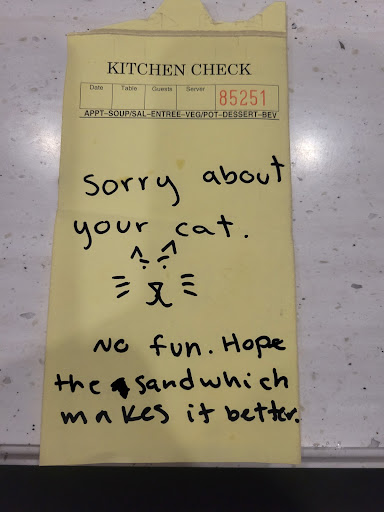 KITCHEN CHECK
Date Table Guests Server 85251
APPT-SOUP/SAL-ENTREE-VEG/POT-DESSERT-BEV
Sorry about
your cat.
No fun. Hope
the sandwhich
makes it better.